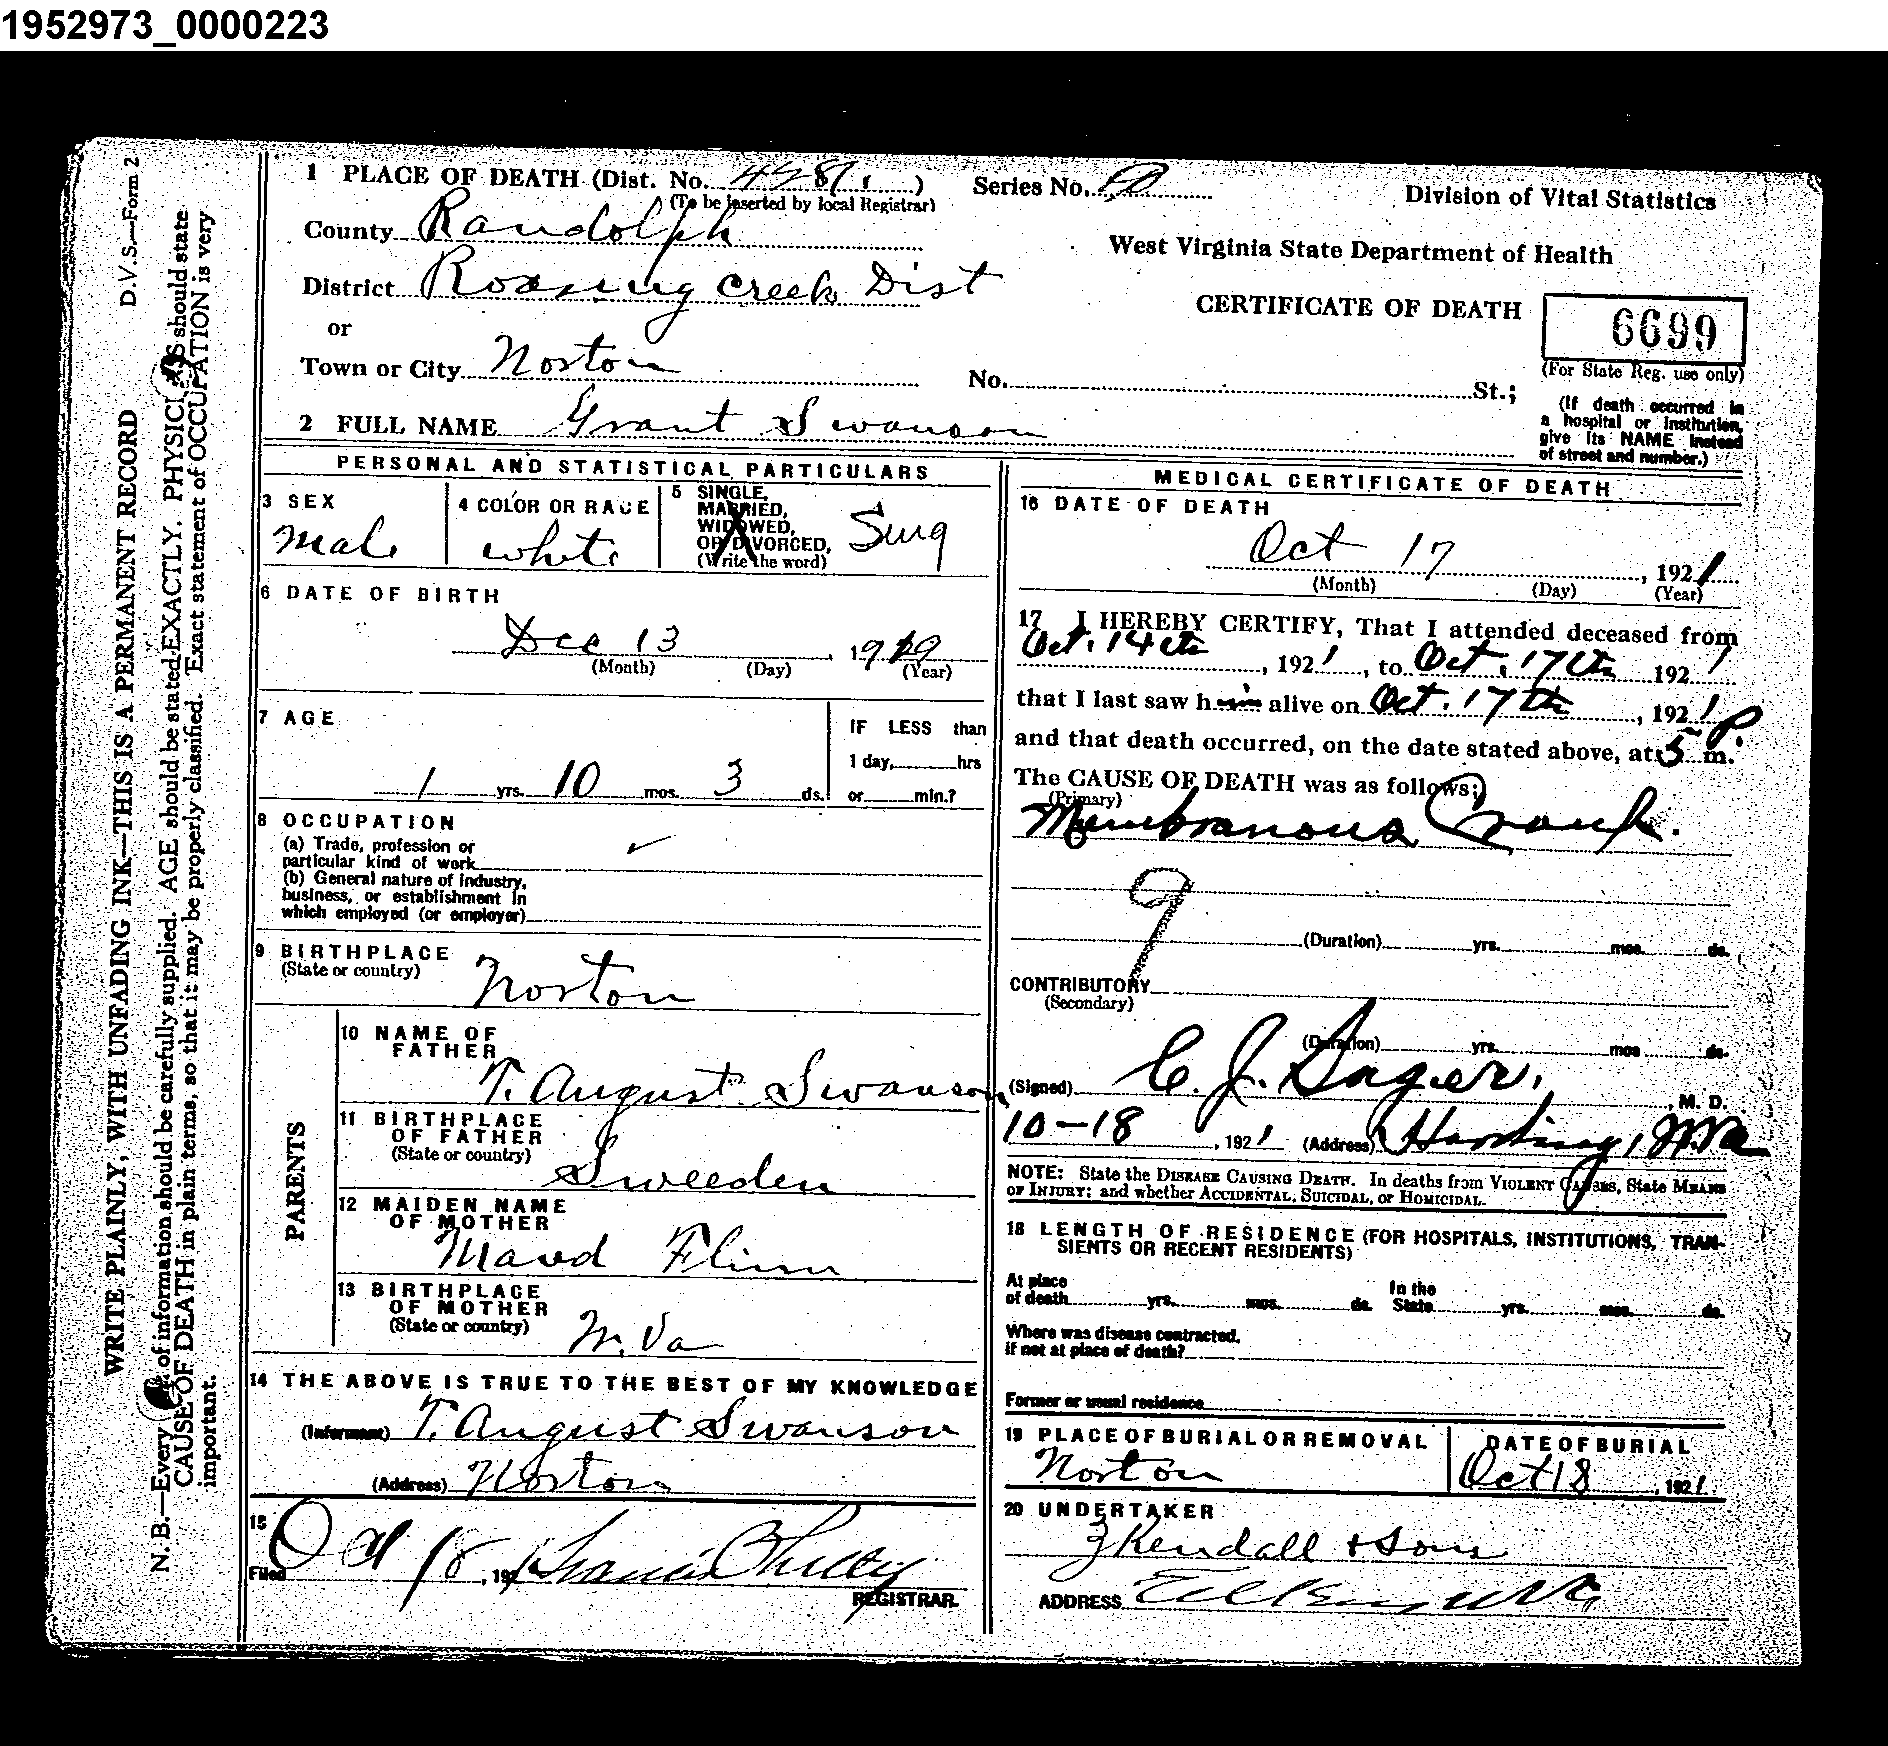 1952973_0000223
D.V.S.—Form 2
WRITE PLAINLY, WITH UNFADING INK—THIS IS A PERMANENT RECORD
N. B.—Every of information should be carefully supplied. AGE should be stated EXACTLY. PHYSICI S should state
CAUSE OF DEATH in plain terms, so that it may be properly classified. Exact statement of OCCUPATION is very
important.
1 PLACE OF DEATH (Dist. No. 4281 )
(To be inserted by local Registrar)
Series No.
Division of Vital Statistics
County Randolph
West Virginia State Department of Health
District Roaring Creek Dist
CERTIFICATE OF DEATH
6699
(For State Reg. use only)
or
Town or City Norton
No. St.;
(If death occurred in
a hospital or institution,
give its NAME instead
of street and number.)
2 FULL NAME Grant Swanson
PERSONAL AND STATISTICAL PARTICULARS
3 SEX
Male
4 COLOR OR RACE
White
5 SINGLE,
MARRIED,
WIDOWED,
OR DIVORCED,
(Write the word)
Sing
6 DATE OF BIRTH
Dec 13 , 1919
(Month) (Day) (Year)
7 AGE
1 yrs. 10 mos. 3 ds.
IF LESS than
1 day, hrs
or min.?
8 OCCUPATION
(a) Trade, profession or
particular kind of work
(b) General nature of industry,
business, or establishment in
which employed (or employer)
9 BIRTHPLACE
(State or country)
Norton
PARENTS
10 NAME OF
FATHER
T. August Swanson
11 BIRTHPLACE
OF FATHER
(State or country)
Sweeden
12 MAIDEN NAME
OF MOTHER
Maud Flinn
13 BIRTHPLACE
OF MOTHER
(State or country)
W. Va
14 THE ABOVE IS TRUE TO THE BEST OF MY KNOWLEDGE
(Informant) T. August Swanson
(Address) Norton
15
Filed Oct 18, 192
REGISTRAR
MEDICAL CERTIFICATE OF DEATH
16 DATE OF DEATH
Oct 17 , 1921
(Month) (Day) (Year)
17 I HEREBY CERTIFY, That I attended deceased from
Oct. 14th, 1921, to Oct. 17th 1921
that I last saw him alive on Oct. 17th, 1921
and that death occurred, on the date stated above, at 5 P. m.
The CAUSE OF DEATH was as follows:
(Primary)
Membranous Croup.
9
(Duration) yrs. mos. ds.
CONTRIBUTORY
(Secondary)
(Duration) yrs. mos. ds.
(Signed) C. J. Sager, M. D.
10-18, 1921 (Address) Harding, W.Va
NOTE: State the DISEASE CAUSING DEATH. In deaths from VIOLENT CAUSES, State MEANS
OF INJURY; and whether ACCIDENTAL, SUICIDAL, or HOMICIDAL.
18 LENGTH OF RESIDENCE (FOR HOSPITALS, INSTITUTIONS, TRAN-
SIENTS OR RECENT RESIDENTS)
At place
of death yrs. mos. ds.
In the
State yrs. mos. ds.
Where was disease contracted,
if not at place of death?
Former or usual residence
19 PLACE OF BURIAL OR REMOVAL
Norton
DATE OF BURIAL
Oct 18, 1921
20 UNDERTAKER
Kendall & Son
ADDRESS Elkins W Va